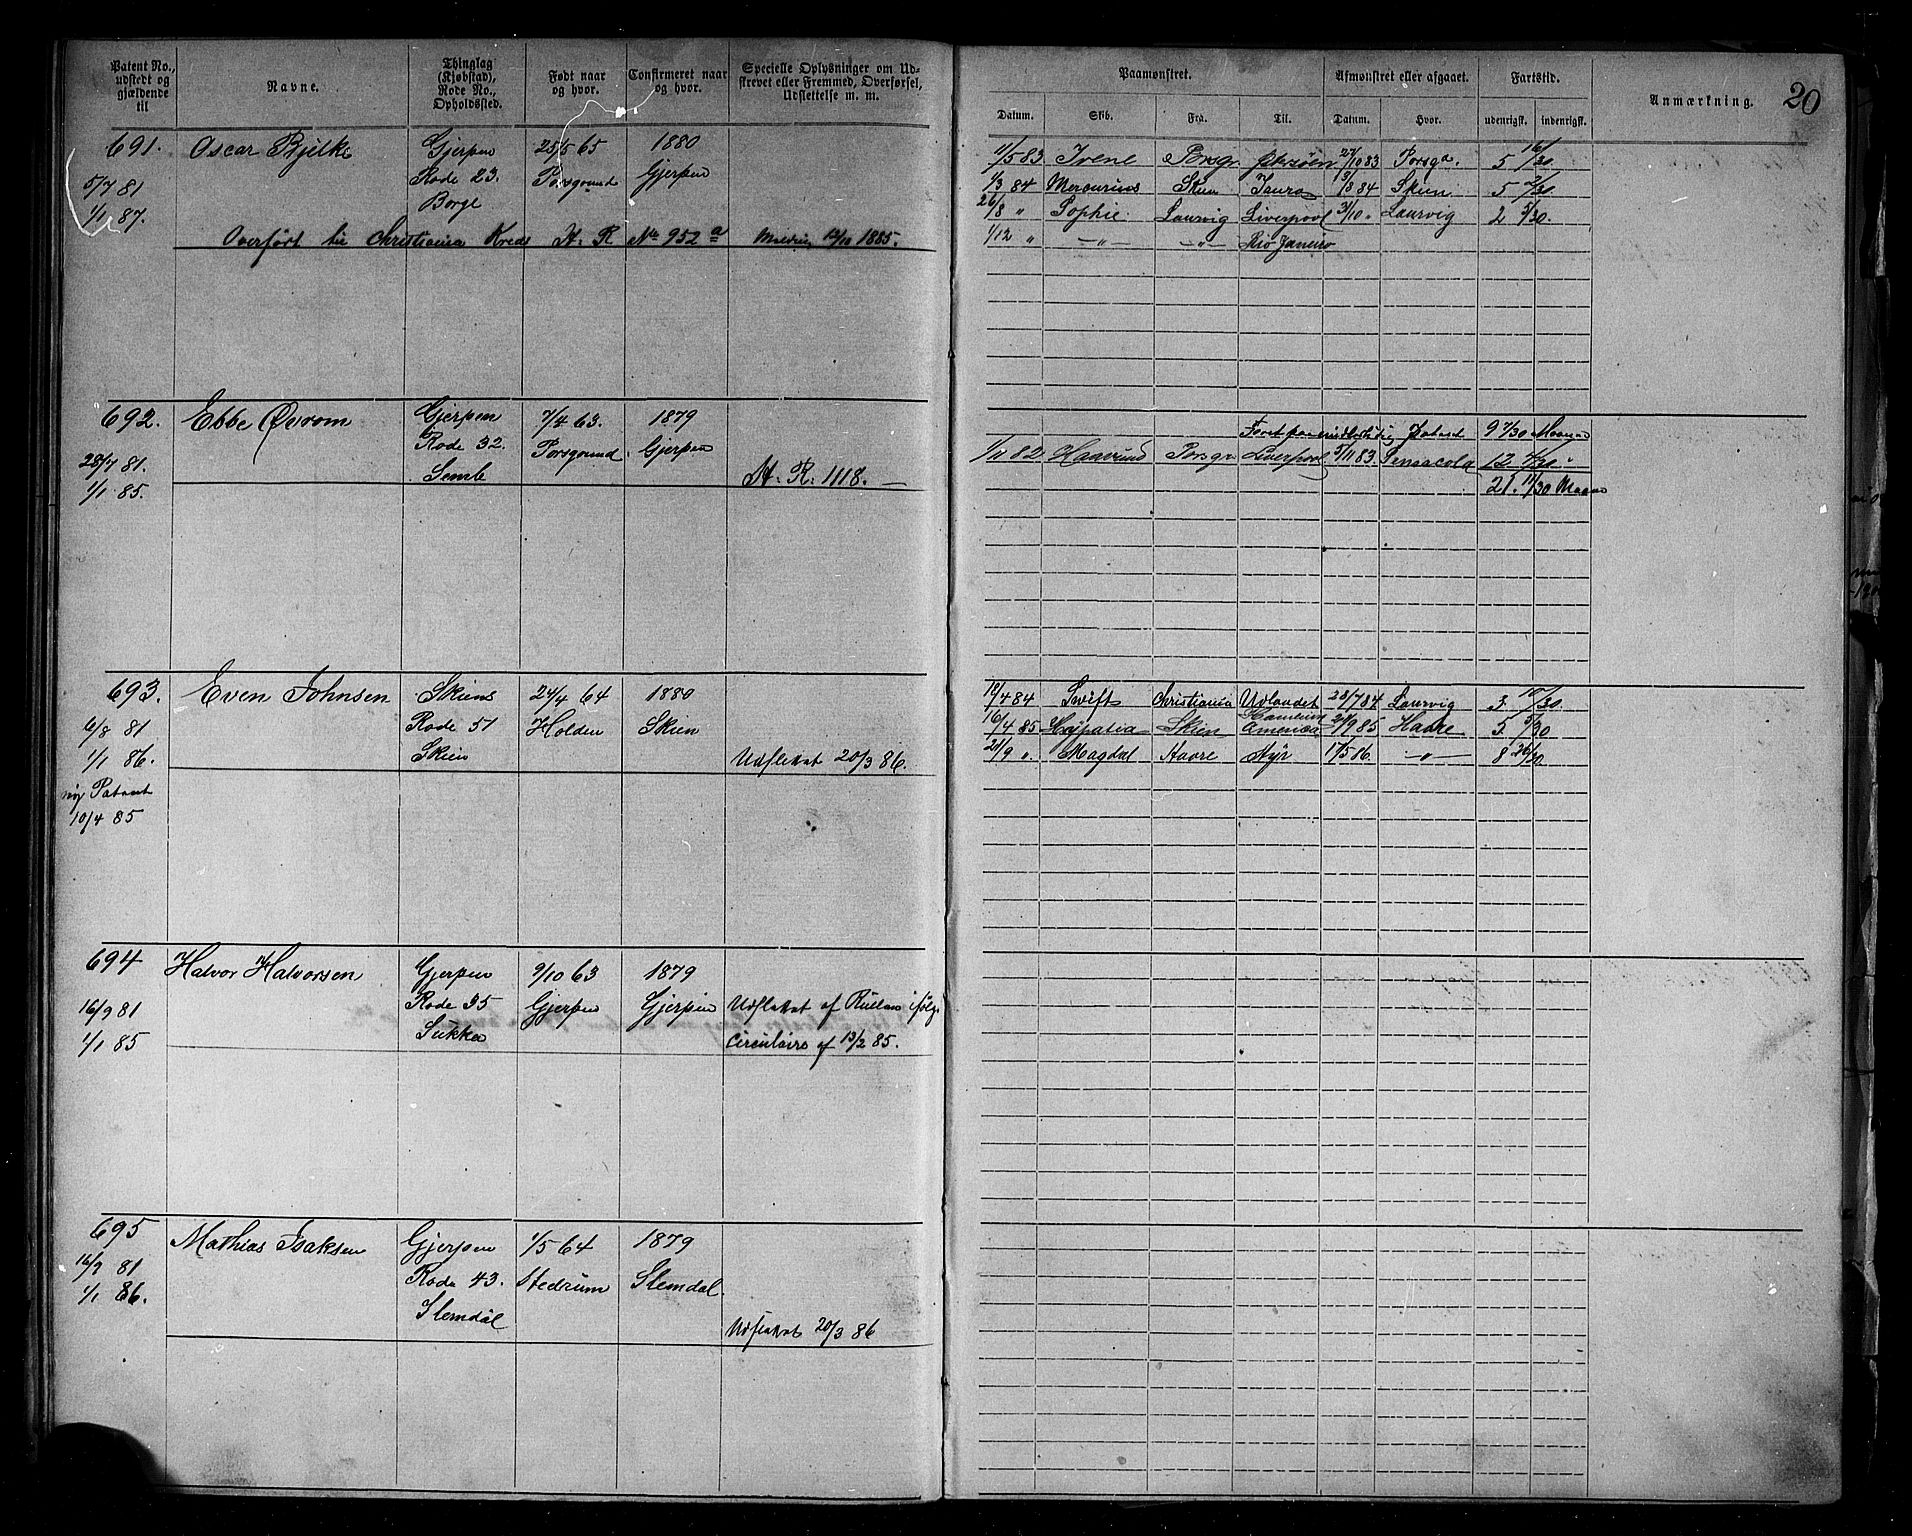 Patent No., udstedt og gjældende til
Navne.
Thinglag (Kjøbstad), Rode No., Opholdssted.
Født naar og hvor.
Confirmeret naar og hvor.
Specielle Oplysninger om Udskrevet eller Fremmed, Overførsel, Udslettelse m. m.
Paamønstret.
Afmønstret eller afgaaet.
Fartstid.
Anmærkning.
20
Datum. Skib. Fra. Til. Datum. Hvor. udenrigsk. indenrigsk.
691. Oscar Bjelke Gjerpen 25/5 65 1880
5/7 81 Rode 23. Porsgrund Gjerpen
1/1 87. Borge
Overført til Christiania Kreds H. R No 952 a Melding 12/10 1885.
11/5 83 Irene Porsgr. 27/10 83 Porsgr. 5 16/30
1/3 84 Mercurius Skien 84 Skien 5 2/30
26/8 " Sophie Laurvig Liverpool 31/10 " Laurvig 2 5/30.
1/12 " —"— —"— Rio Janeiro
692. Ebbe Øvrom Gjerpen 7/4 63. 1879
28/7 81. Rode 32. Porsgrund Gjerpen
1/1 85. Semb H. R. 1118. —
Patent 9 7/30 Maaned
1/11 82 Haavund Porsgr. Liverpool 5/11 83. Pensacola 12 4/30 "
21. 11/30 Maaned
693. Even Johnsen Skiens 24/4 64 1880
6/8 81 Rode 51 Holden Skien
1/1 86. Skien Udslettet 20/3 86.
ny Patent
10/4 85
19/4 84 Swift Christiania Udlandet 28/7 84 Laurvig 3. 10/30.
16/4 85 Hypatia Skien America 21/9 85 Havre 5. 5/30
21/9 ". Magdal Havre Ayr 17/5 86. —"— 8 26/30
694 Halvor Halvorsen Gjerpen 9/10 63 1879
16/9 81 Rode 35 Gjerpen Gjerpen Udslettet af Rullen ifølge
1/1 85 Sukka Circulaire af 13/2 85.
695 Mathias Isaksen Gjerpen 1/5 64 1879
16/9 81 Rode 43. Slemdal.
1/1 86. Slemdal
Udslettet 20/3 86